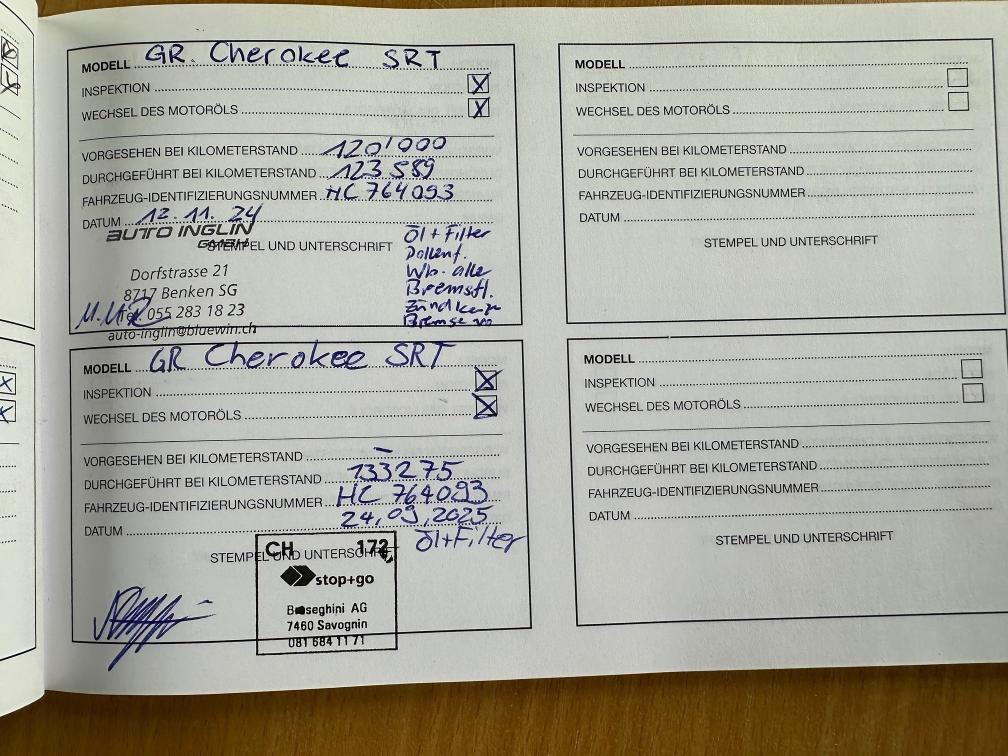 MODELL GR. Cherokee SRT
INSPEKTION X
WECHSEL DES MOTORÖLS X
VORGESEHEN BEI KILOMETERSTAND 120'000
DURCHGEFÜHRT BEI KILOMETERSTAND 123 589
FAHRZEUG-IDENTIFIZIERUNGSNUMMER HC 764093
DATUM 12. 11. 24
AUTO INGLIN
GMBH
STEMPEL UND UNTERSCHRIFT
Öl + Filter
Pollenf.
Wb. alle
Bremsfl.
Dorfstrasse 21
8717 Benken SG
Tel. 055 283 18 23
auto-inglin@bluewin.ch
MODELL GR Cherokee SRT
INSPEKTION X
WECHSEL DES MOTORÖLS X
VORGESEHEN BEI KILOMETERSTAND –
DURCHGEFÜHRT BEI KILOMETERSTAND 133275
FAHRZEUG-IDENTIFIZIERUNGSNUMMER HC 764093
DATUM 24.09.2025
Öl+Filter
STEMPEL UND UNTERSCHRIFT
CH 172
stop+go
AG
7460 Savognin
081 684 11 71
MODELL
INSPEKTION
WECHSEL DES MOTORÖLS
VORGESEHEN BEI KILOMETERSTAND
DURCHGEFÜHRT BEI KILOMETERSTAND
FAHRZEUG-IDENTIFIZIERUNGSNUMMER
DATUM
STEMPEL UND UNTERSCHRIFT
MODELL
INSPEKTION
WECHSEL DES MOTORÖLS
VORGESEHEN BEI KILOMETERSTAND
DURCHGEFÜHRT BEI KILOMETERSTAND
FAHRZEUG-IDENTIFIZIERUNGSNUMMER
DATUM
STEMPEL UND UNTERSCHRIFT